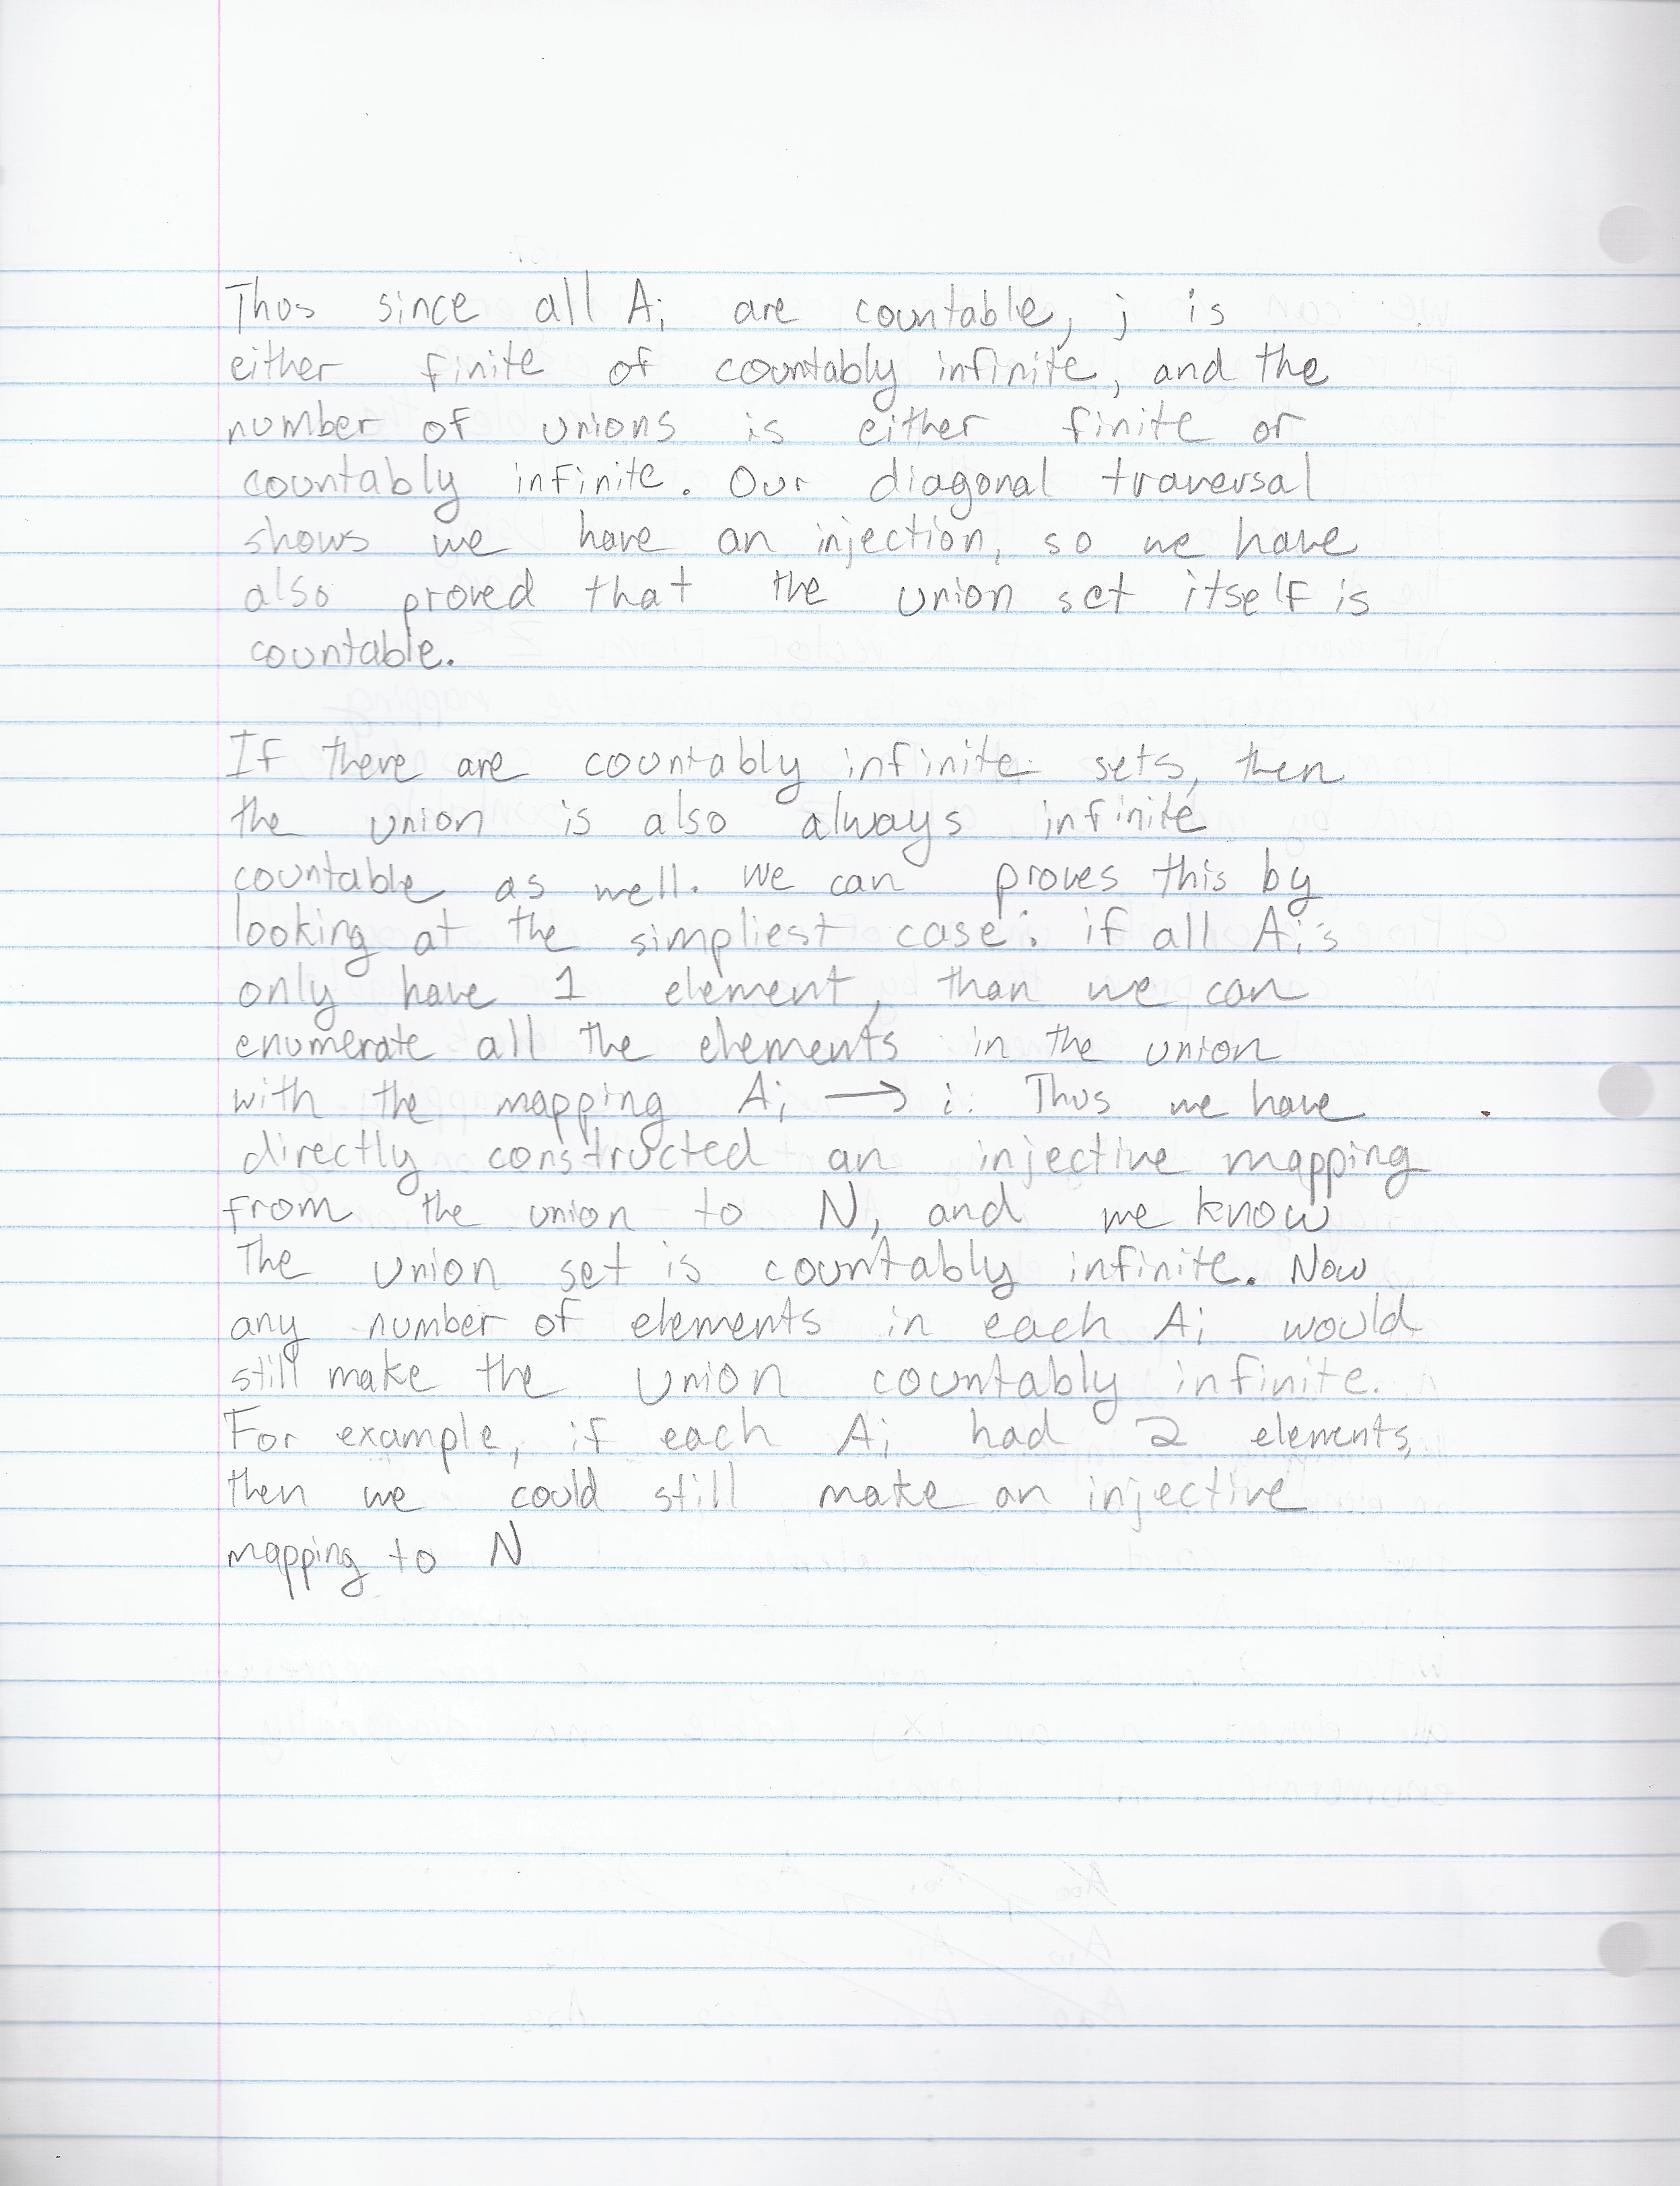 Thus since all Ai are countable, j is
either finite of countably infinite, and the
number of unions is either finite or
countably infinite. Our diagonal traversal
shows we have an injection, so we have
also proved that the union set itself is
countable.
If there are countably infinite sets, then
the union is also always infinite
countable as well. We can proves this by
looking at the simpliest case: if all Ai's
only have 1 element, than we can
enumerate all the elements in the union
with the mapping Ai → i. Thus we have
directly constructed an injective mapping
from the union to N, and we know
the union set is countably infinite. Now
any number of elements in each Ai would
still make the union countably infinite.
For example, if each Ai had 2 elements,
then we could still make an injective
mapping to N